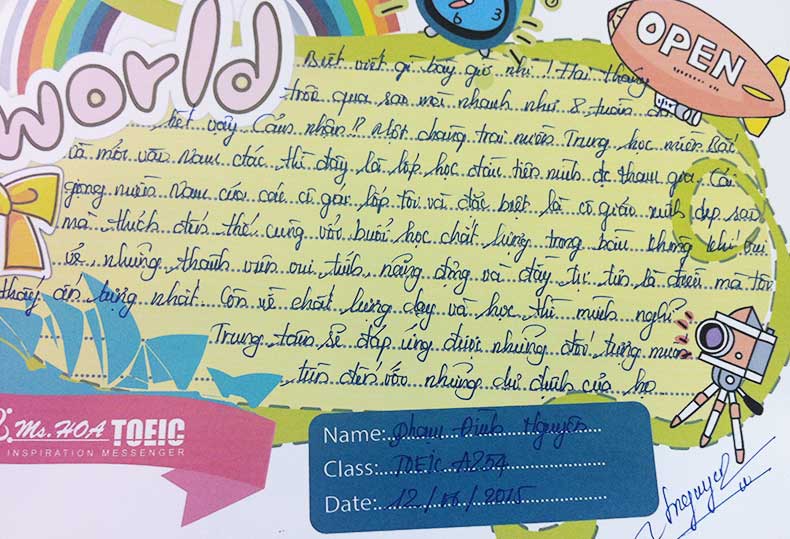 world
6 3
OPEN
Biết viết gì bây giờ nhỉ! Hai tháng
trôi qua sao mà nhanh như 8 tuần
vậy. Cảm nhận!! Một chàng trai miền Trung học miền Bắc
và mới vào Nam thì đây là lớp học đầu tiên mình đc tham gia. Cái
giọng miền Nam của các cô gái lớp tôi và đặc biệt là cô giáo xinh đẹp sao
mà thích đến thế cùng với buổi học chất lượng trong bầu không khí vui
vẻ, những thành viên vui tính, năng động và đầy tự tin là điều mà tôi
thấy ấn tượng nhất. Còn về chất lượng dạy và học thì mình nghĩ
Trung tâm sẽ đáp ứng được những đối tượng muốn
tìm đến với những dự định của họ
Ms. HOA TOEIC
INSPIRATION MESSENGER
Name: Phạm Đình Nguyên
Class: TOEIC A254
Date: 12/ /2015